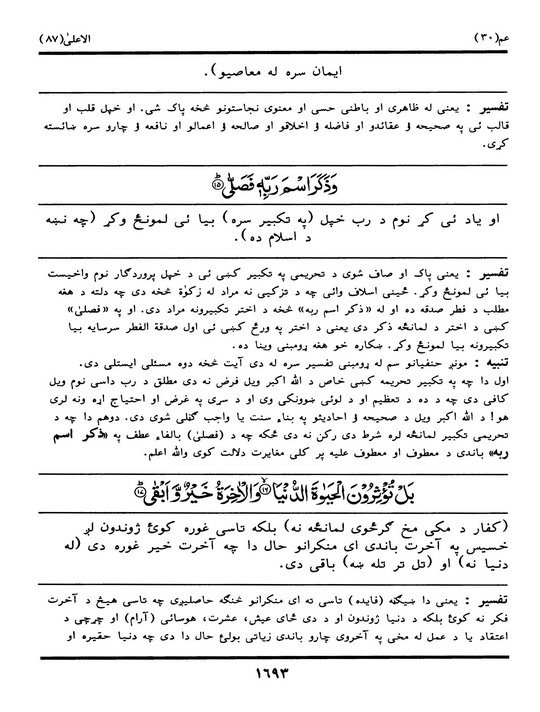 عم(٣٠)
الاعلیٰ(٨٧)
ایمان سره له معاصیو).
تفسیر : یعنی له ظاهری او باطنی حسی او معنوی نجاستونو څخه پاک شی. او خپل قلب او
قالب ئی په صحیحه ؤ عقائدو او فاضله ؤ اخلاقو او صالحه ؤ اعمالو او نافعه ؤ چارو سره ښائسته
کړی.
وَذَكَرَ اسْمَ رَبِّهٖ فَصَلّٰی ﴿١٥﴾
او یاد ئی کړ نوم د رب خپل (په تکبیر سره) بیا ئی لمونځ وکړ (چه نښه
د اسلام ده).
تفسیر : یعنی پاک او صاف شوی د تحریمی په تکبیر کښی ئی د خپل پروردګار نوم واخیست
بیا ئی لمونځ وکړ. ځینی اسلاف وائی چه د تزکیی نه مراد له زکوٰة څخه دی چه دلته د هغه
مطلب د فطر صدقه ده او له «ذکر اسم ربه» څخه د اختر تکبیرونه مراد دی. او په «فصلیٰ»
کښی د اختر د لمانځه ذکر دی یعنی د اختر په ورځ کښی ئی اول صدقة الفطر سرسایه بیا
تکبیرونه بیا لمونځ وکړ. ښکاره خو هغه ړومبنی وینا ده.
تنبیه : مونږ حنفیانو سم له ړومبنی تفسیر سره له دی آیت څخه دوه مسئلی ایستلی دی.
اول دا چه په تکبیر تحریمه کښی خاص د الله اکبر ویل فرض نه دی مطلق د رب داسی نوم ویل
کافی دی چه د ده د تعظیم او د لوئی ښوونکی وی او د سړی په غرض او احتیاج اړه ونه لری
هو! د الله اکبر ویل د صحیحه ؤ احادیثو په بناء سنت یا واجب ګڼلی شوی دی. دوهم دا چه د
تحریمی تکبیر لمانځه لره شرط دی رکن نه دی ځکه چه د (فصلیٰ) بالفاء عطف په «ذکر اسم
ربه» باندی د معطوف او معطوف علیه پر کلی مغایرت دلالت کوی والله اعلم.
بَلْ تُؤْثِرُوْنَ الْحَیٰوةَ الدُّنْیَا ﴿١٦﴾ وَالْاٰخِرَةُ خَیْرٌ وَّاَبْقٰی ﴿١٧﴾
(کفار د مکی مخ ګرځوی لمانځه نه) بلکه تاسی غوره کوئ ژوندون لږ
خسیس په آخرت باندی ای منکرانو حال دا چه آخرت خیر غوره دی (له
دنیا نه) او (تل تر تله ښه) باقی دی.
تفسیر : یعنی دا ښیګڼه (فایده) تاسی ته ای منکرانو څنګه حاصلیږی چه تاسی هیڅ د آخرت
فکر نه کوئ بلکه د دنیا ژوندون او د دی ځای عیش، عشرت، هوسائی (آرام) او چرچی د
اعتقاد یا د عمل له مخی په آخروی چارو باندی زیاتی بولئ حال دا دی چه دنیا حقیره او
١٦٩٣